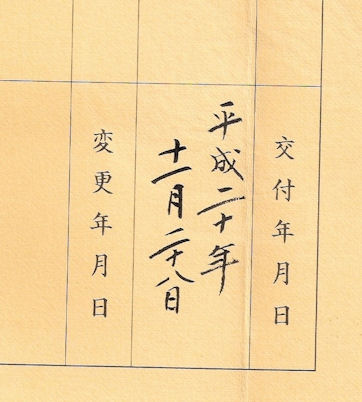 交付年月日
平成二十年
十一月二十八日
変更年月日